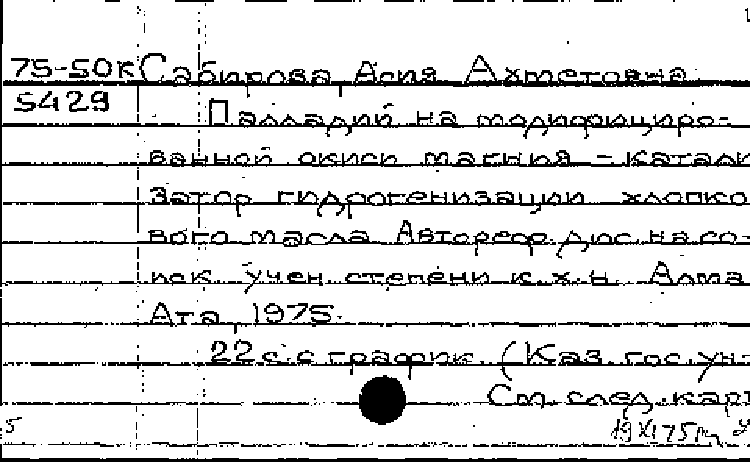 75-50к Сабирова Асия Ахметовна
5429
Палладий на модифициро-
ванной окиси магния - катали
затор гидрогенизации хлопко
вого масла Автореф. дис. на со-
иск учен степени к. х. н. Алма
Ата, 1975.
22 с. с график. (Каз. гос. ун-
См. след. карт
5